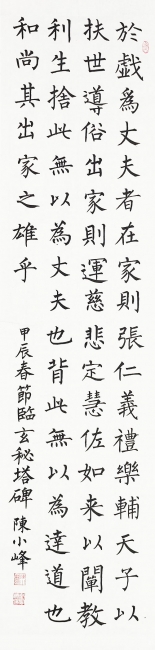 於戲為丈夫者在家則張仁義禮樂輔天子以
扶世導俗出家則運慈悲定慧佐如来以闡教
利生捨此無以為丈夫也背此無以為達道也
和尚其出家之雄乎
甲辰春節臨玄秘塔碑 陳小峰